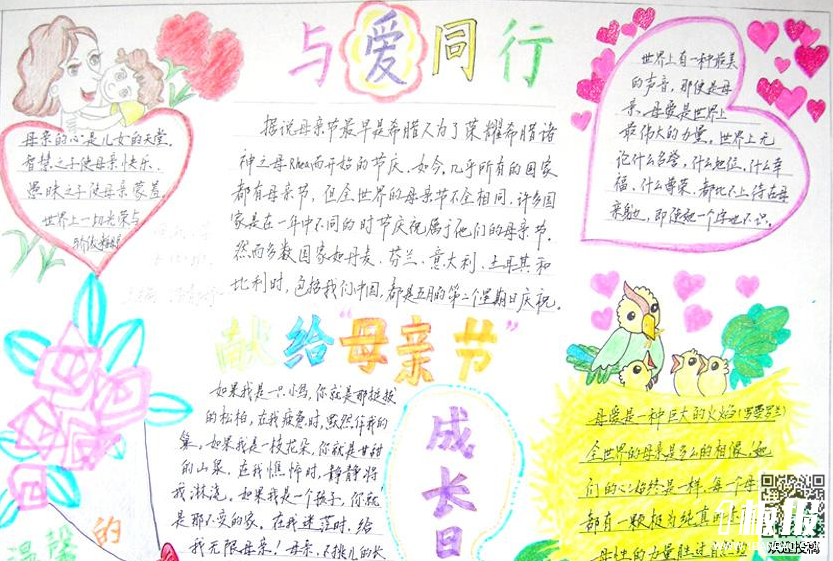 与爱同行
母亲的心是儿女的天堂。
智慧之子使母亲快乐，
愚昧之子使母亲蒙羞。
世界上一切光荣与
骄傲
据说母亲节最早是希腊人为了荣耀希腊诸
神之母Rhea而开始的节庆。如今，几乎所有的国家
都有母亲节，但全世界的母亲节不全相同，许多国
家是在一年中不同的时节庆祝属于他们的母亲节。
然而多数国家如丹麦、芬兰、意大利、土耳其和
比利时，包括我们中国，都是五月的第二个星期日庆祝。
世界上有一种最美
的声音，那便是母
亲，母爱是世界上
最伟大的力量。世界上无
论什么名誉，什么地位，什么幸
福，什么尊荣，都比不上待在母
亲身边，即使她一个字也不识。
献给“母亲节”
如果我是一只小鸟，你就是那挺拔
的松柏，在我疲惫时，默然作我的
巢。如果我是一枝花朵，你就是甘甜
的山泉，在我憔悴时，静静将
我淋浇。如果我是一个孩子，你就
是那不变的家，在我迷茫时，给
我无限母亲！母亲，不挑儿的长
成长日
母爱是一种巨大的火焰（罗曼罗兰）
全世界的母亲是多么的相像！她
们的心始终是一样，每个母
都有一颗极为纯真的
母性的力量胜过自然的
温馨的
板报
欢迎投稿